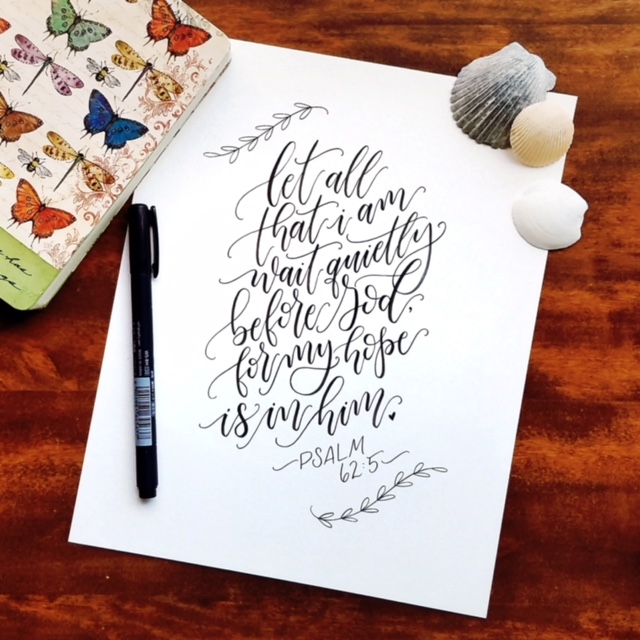 let all
that i am
wait quietly
before God,
for my hope
is in him.
PSALM
62:5